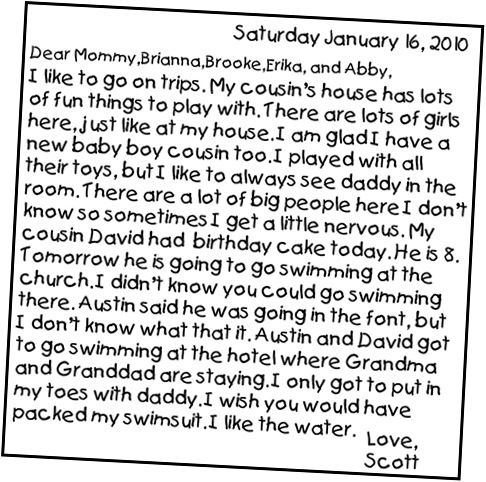 Saturday January 16, 2010
Dear Mommy,Brianna,Brooke,Erika, and Abby,
I like to go on trips. My cousin's house has lots
of fun things to play with.There are lots of girls
here,just like at my house.I am glad I have a
new baby boy cousin too.I played with all
their toys, but I like to always see daddy in the
room.There are a lot of big people here I don't
know so sometimes I get a little nervous. My
cousin David had birthday cake today.He is 8.
Tomorrow he is going to go swimming at the
church.I didn't know you could go swimming
there. Austin said he was going in the font, but
I don't know what that it. Austin and David got
to go swimming at the hotel where Grandma
and Granddad are staying.I only got to put in
my toes with daddy.I wish you would have
packed my swimsuit.I like the water.
Love,
Scott